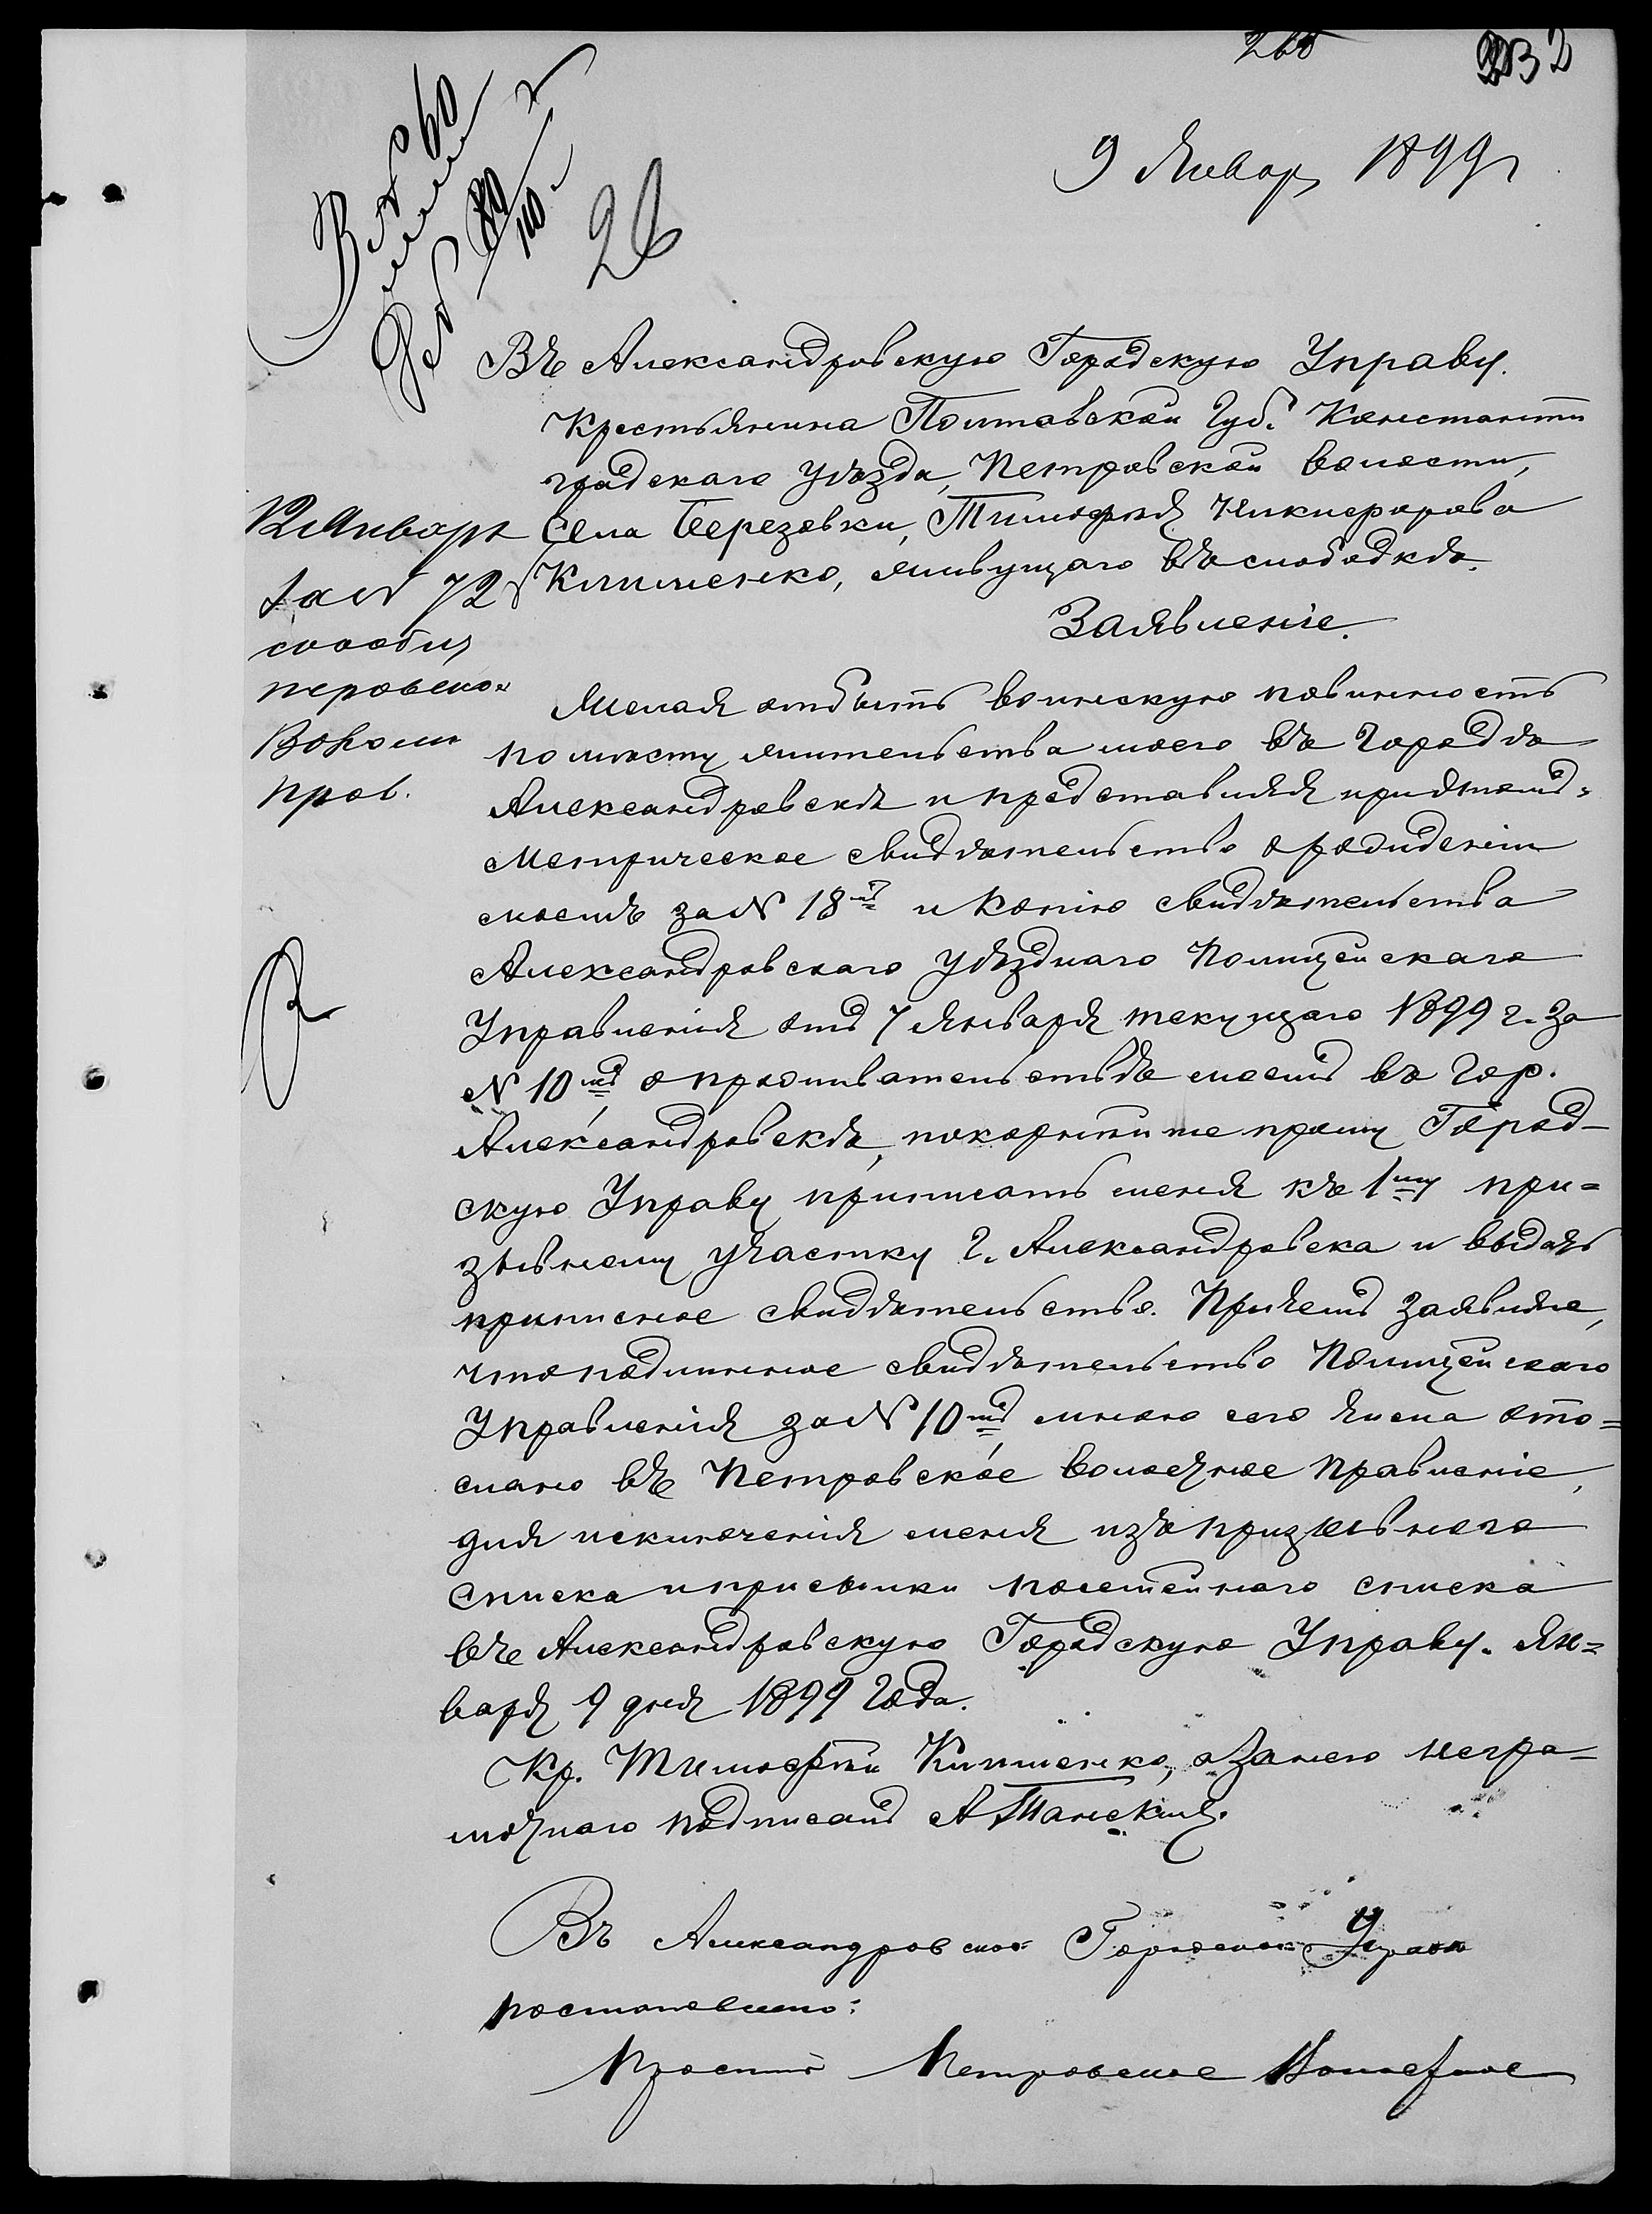 232
9 Январ 1899 г
26
Въ Александровскую Городскую Управу.
Крестьянина Полтавской Губ. Константи
градскаго уѣзда, Петровской волости,
Села Березовки, Тимофѣя Никифорова
Клименко, живущаго въ слободкѣ.
Заявленіе.
12 Января
за № 72
сообщ
петровско
Волост
прав.
Желая отбыть воинскую повинность
по мѣсту жительства моего въ городѣ
Александровскѣ и представляя при этомъ
метрическое свидѣтельство о рожденіи
моемъ за № 18мъ и копію свидѣтельства
Александровскаго Уѣзднаго Полицейскаго
Управленія отъ 7 января текущаго 1899 г. за
№ 10мъ о проживательствѣ моемъ въ гор.
Александровскѣ, покорнѣйше прошу Город-
скую Управу приписать меня къ 1му при=
зывному участку г. Александровска и выдать
приписное свидѣтельство. Причемъ заявляю,
что подлинное свидѣтельство Полицейскаго
Управленія за № 10мъ мною сего числа ото=
слано въ Петровское волостное правленіе,
для исключенія меня изъ призывнаго
списка и присылки посемейнаго списка
въ Александровскую Городскую Управу. Ян=
варя 9 дня 1899 года.
Кр. Тимофѣй Клименко, а за него негра-
мотнаго подписалъ А Танскій.
Въ Александровской Городской Управѣ
постановлено:
Просить Петровское Волостное